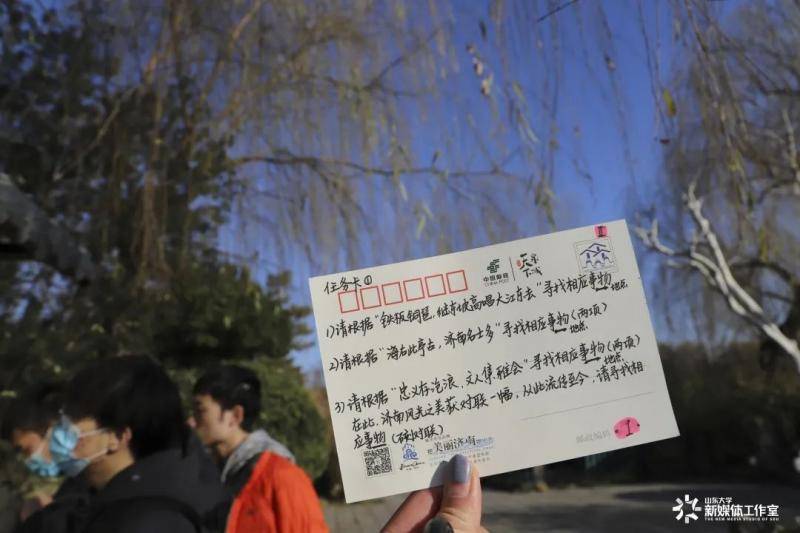 任务卡①
中国邮政
CHINA POST
天下泉城
Ⅱ
1)请根据“铁板铜琶,继东坡高唱大江东去”寻找相应事物
地点
2)请根据“海右此亭古,济南名士多”寻找相应事物(两项)
地点
3)请根据“忠义存沧浪,文人集雅会”寻找相应事物(两项)
地点
在此,济南风光之美获对联一幅,从此流传至今,请寻找相
应事物(碑对联)
把美丽济南
邮政编码
Ⅰ
山东大学
新媒体工作室
THE NEW MEDIA STUDIO OF SDU